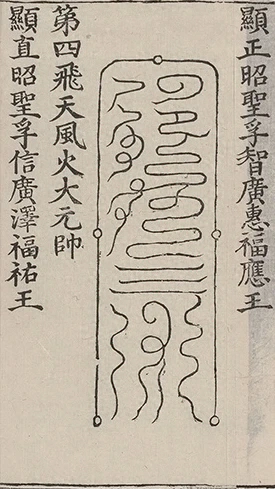 顯正昭聖孚智廣惠福應王
第四飛天風火大元帥
顯直昭聖孚信廣澤福祐王